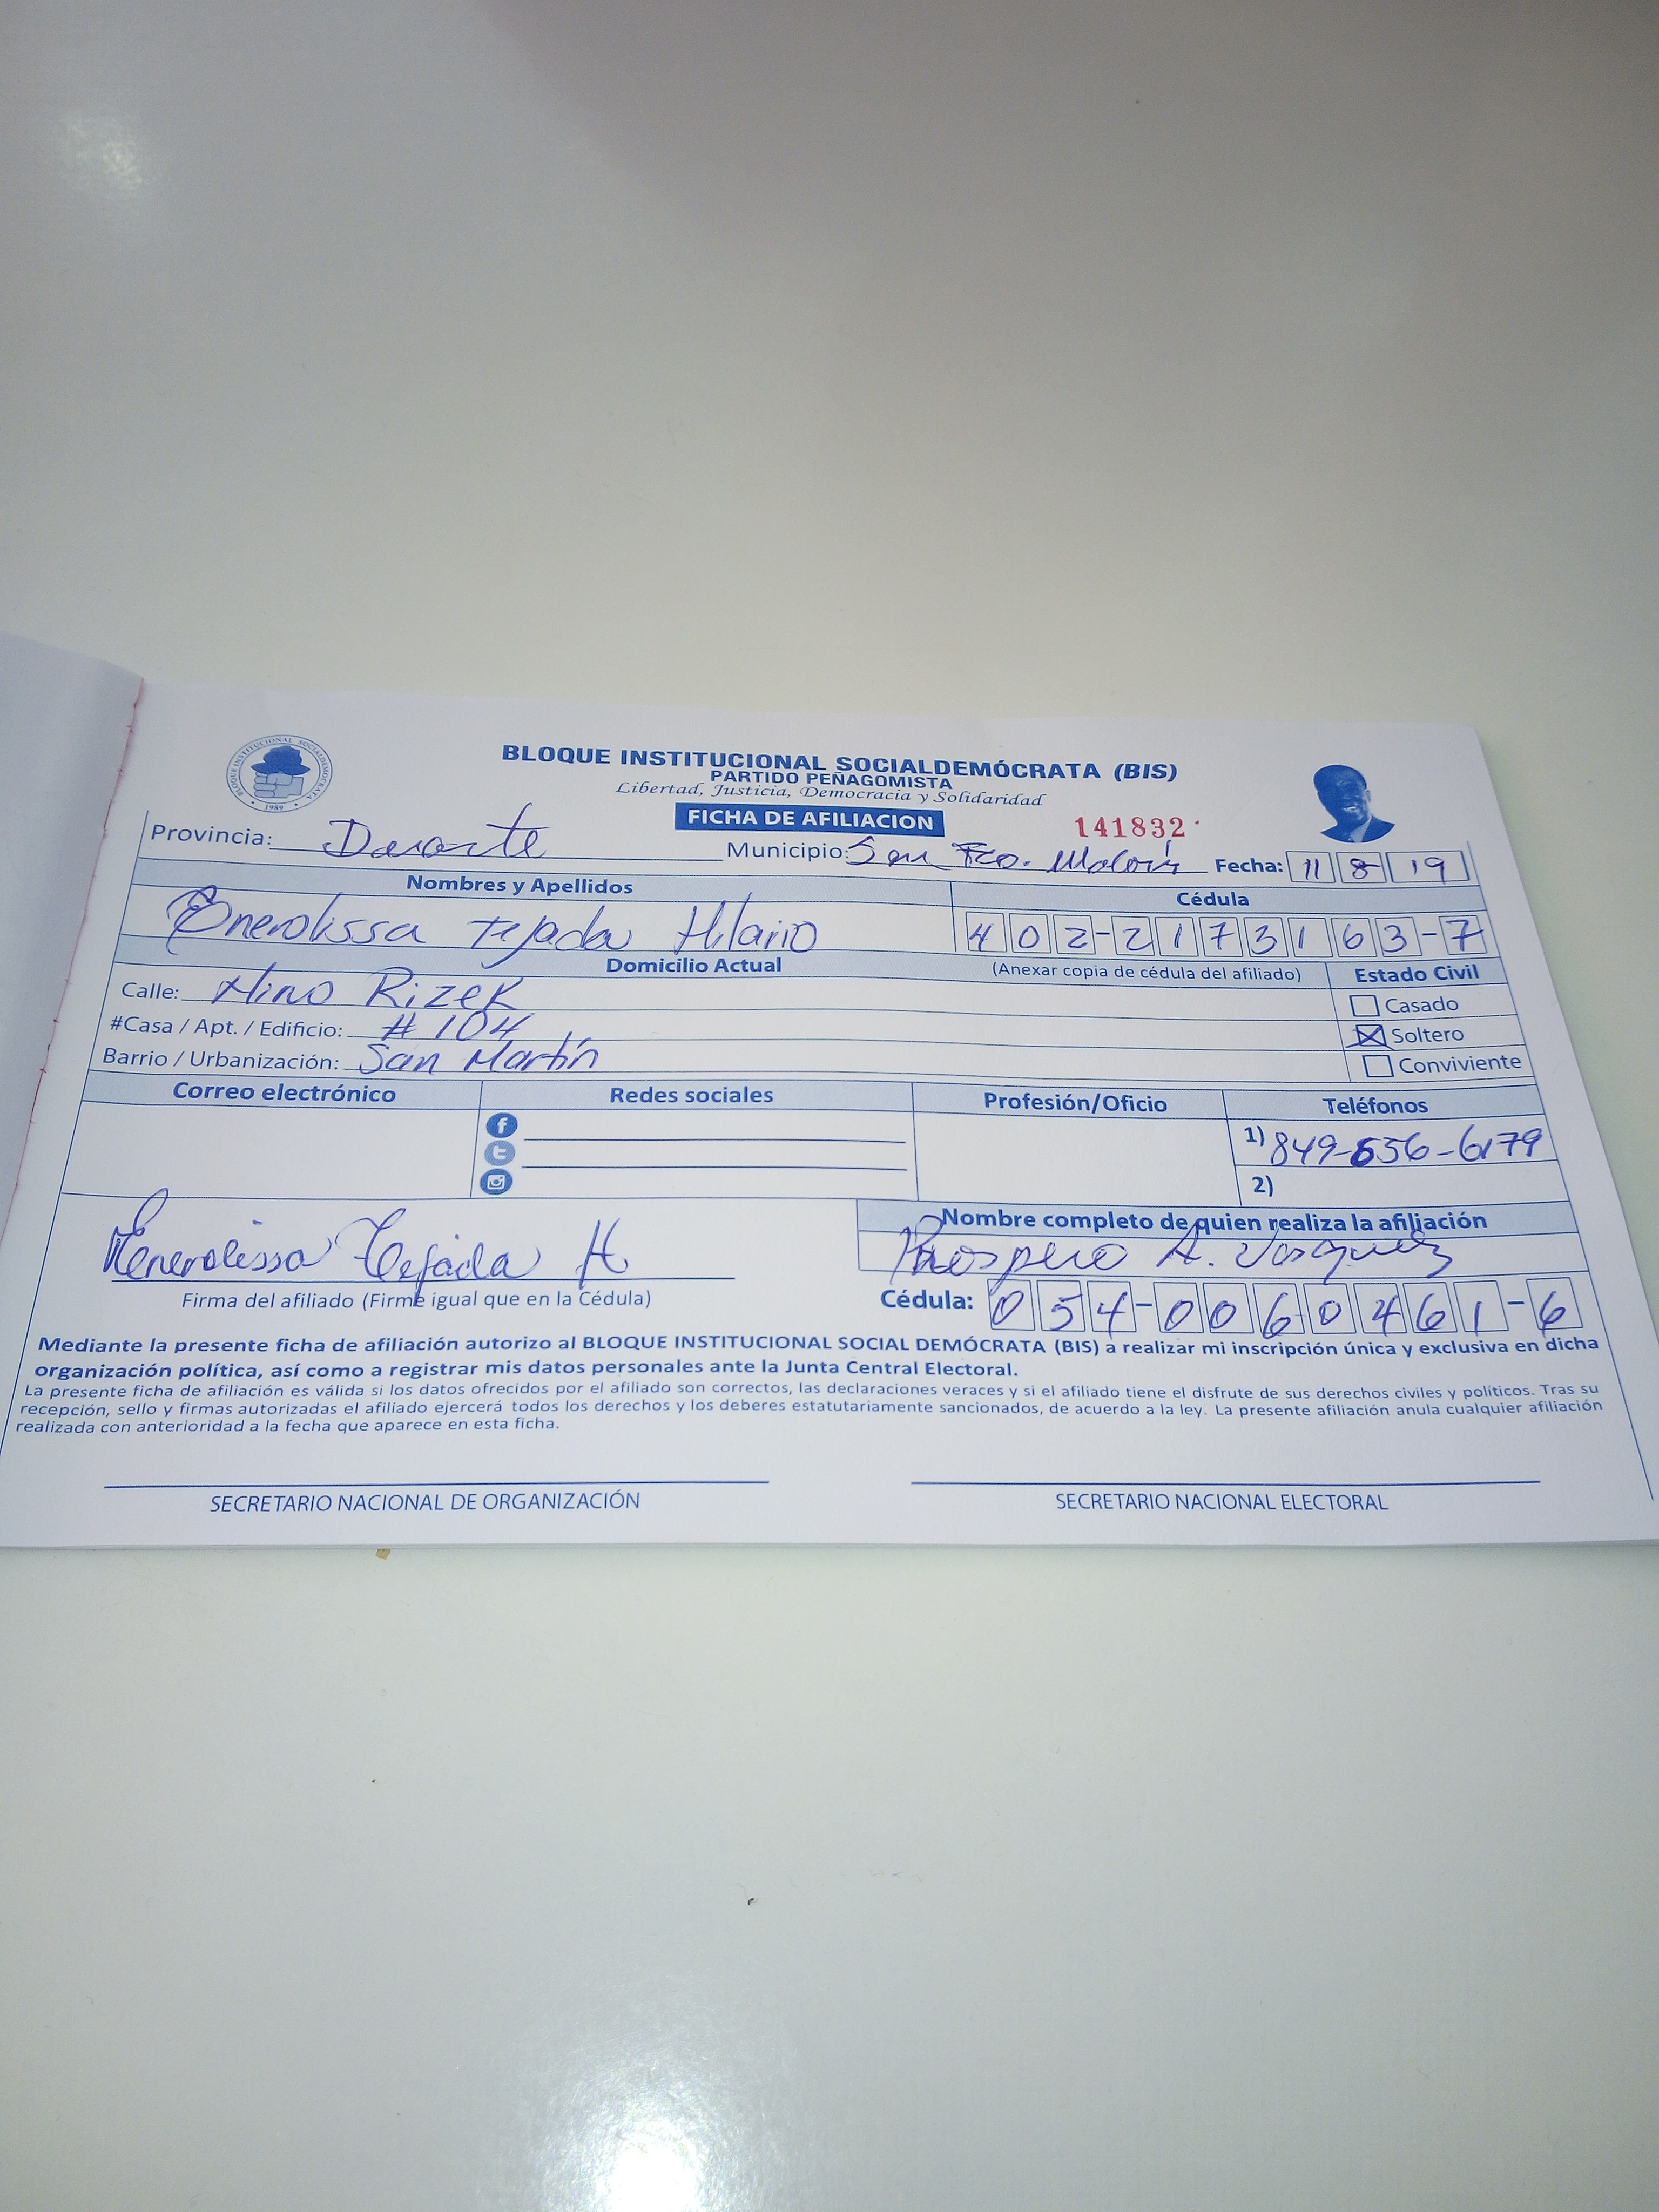 BLOQUE INSTITUCIONAL SOCIALDEMOCRATA
1989
BLOQUE INSTITUCIONAL SOCIALDEMÓCRATA (BIS)
PARTIDO PEÑAGOMISTA
Libertad, Justicia, Democracia y Solidaridad
FICHA DE AFILIACION
141832
Provincia: Duarte Municipio: San Fco. Macorís Fecha: 11 8 19
Nombres y Apellidos Cédula
Enerolissa Tejada Hilario 402-2173163-7
Domicilio Actual (Anexar copia de cédula del afiliado) Estado Civil
Calle: Nino Rizek Casado
#Casa / Apt. / Edificio: #104 Soltero
Barrio / Urbanización: San Martín Conviviente
Correo electrónico Redes sociales Profesión/Oficio Teléfonos
1) 849-656-6179
2)
Nombre completo de quien realiza la afiliación
Enerolissa Tejada H Prospero A. Vasquez
Firma del afiliado (Firme igual que en la Cédula) Cédula: 054-0060461-6
Mediante la presente ficha de afiliación autorizo al BLOQUE INSTITUCIONAL SOCIAL DEMÓCRATA (BIS) a realizar mi inscripción única y exclusiva en dicha
organización política, así como a registrar mis datos personales ante la Junta Central Electoral.
La presente ficha de afiliación es válida si los datos ofrecidos por el afiliado son correctos, las declaraciones veraces y si el afiliado tiene el disfrute de sus derechos civiles y políticos. Tras su
recepción, sello y firmas autorizadas el afiliado ejercerá todos los derechos y los deberes estatutariamente sancionados, de acuerdo a la ley. La presente afiliación anula cualquier afiliación
realizada con anterioridad a la fecha que aparece en esta ficha.
SECRETARIO NACIONAL DE ORGANIZACIÓN SECRETARIO NACIONAL ELECTORAL